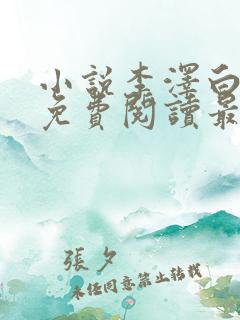 小說李澤白
免費閱讀最
張夕
未經同意禁止轉載